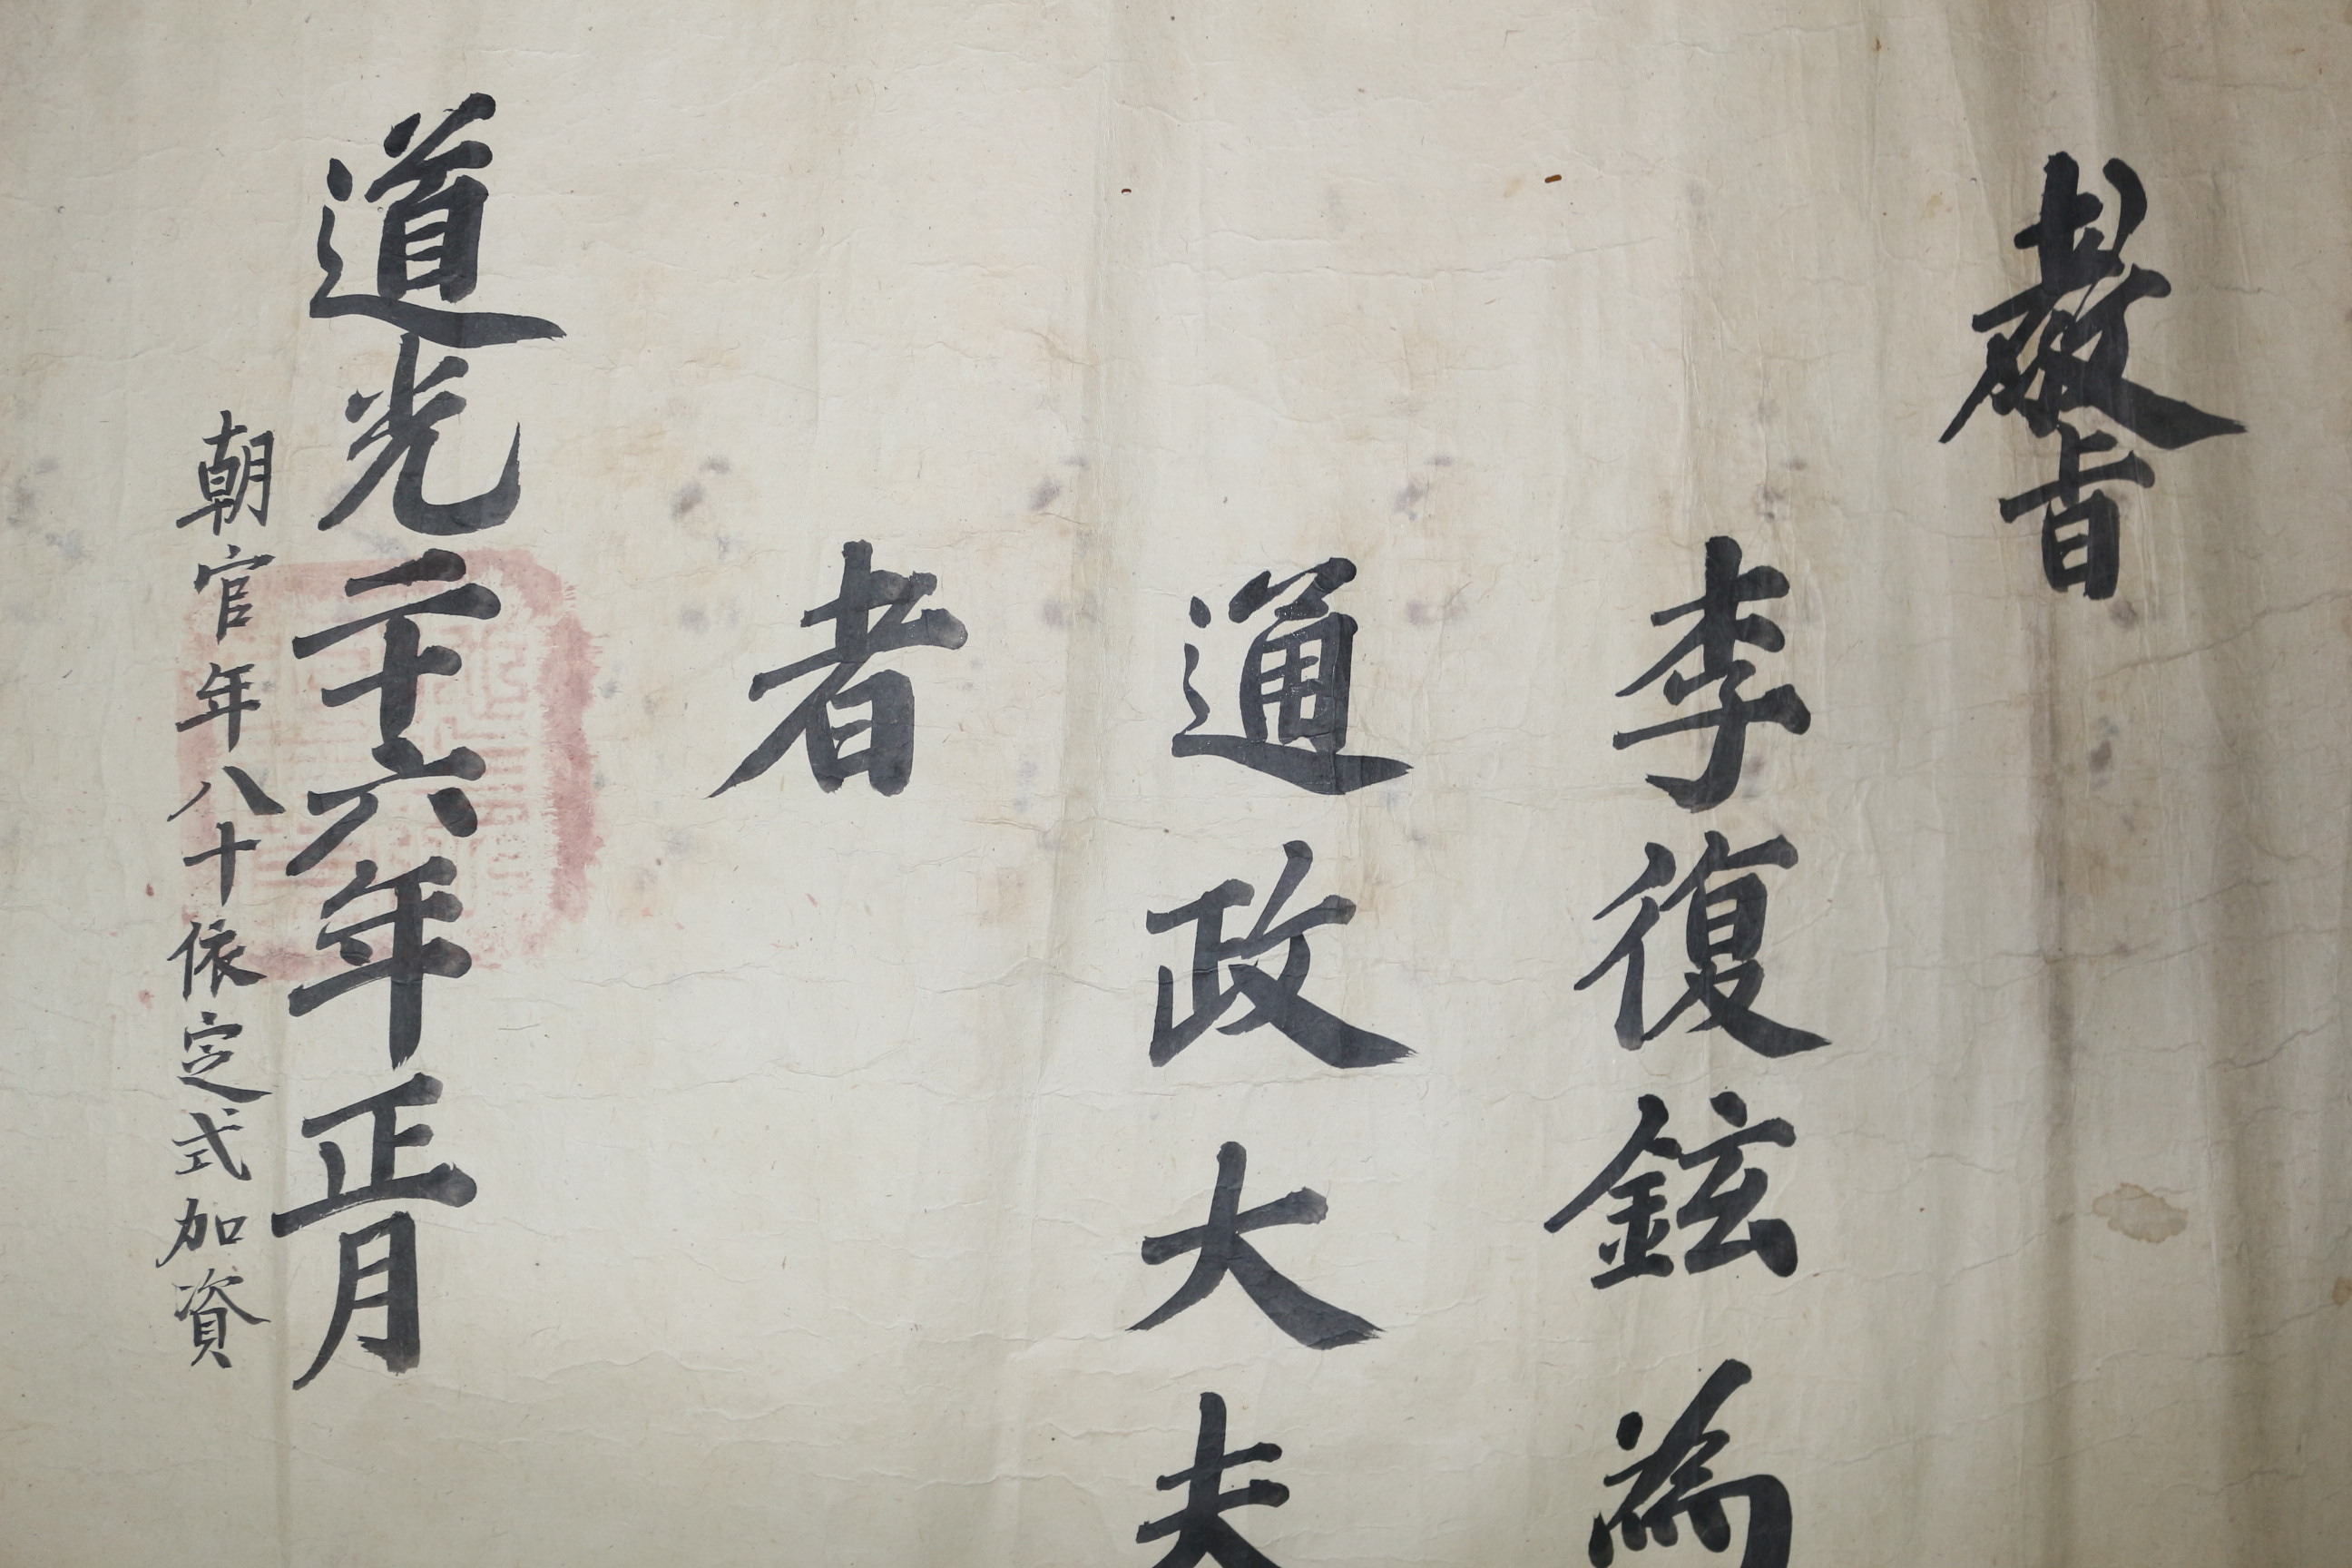 教旨
李復鉉為
通政大夫
者
道光二十六年正月
朝官年八十依定式加資